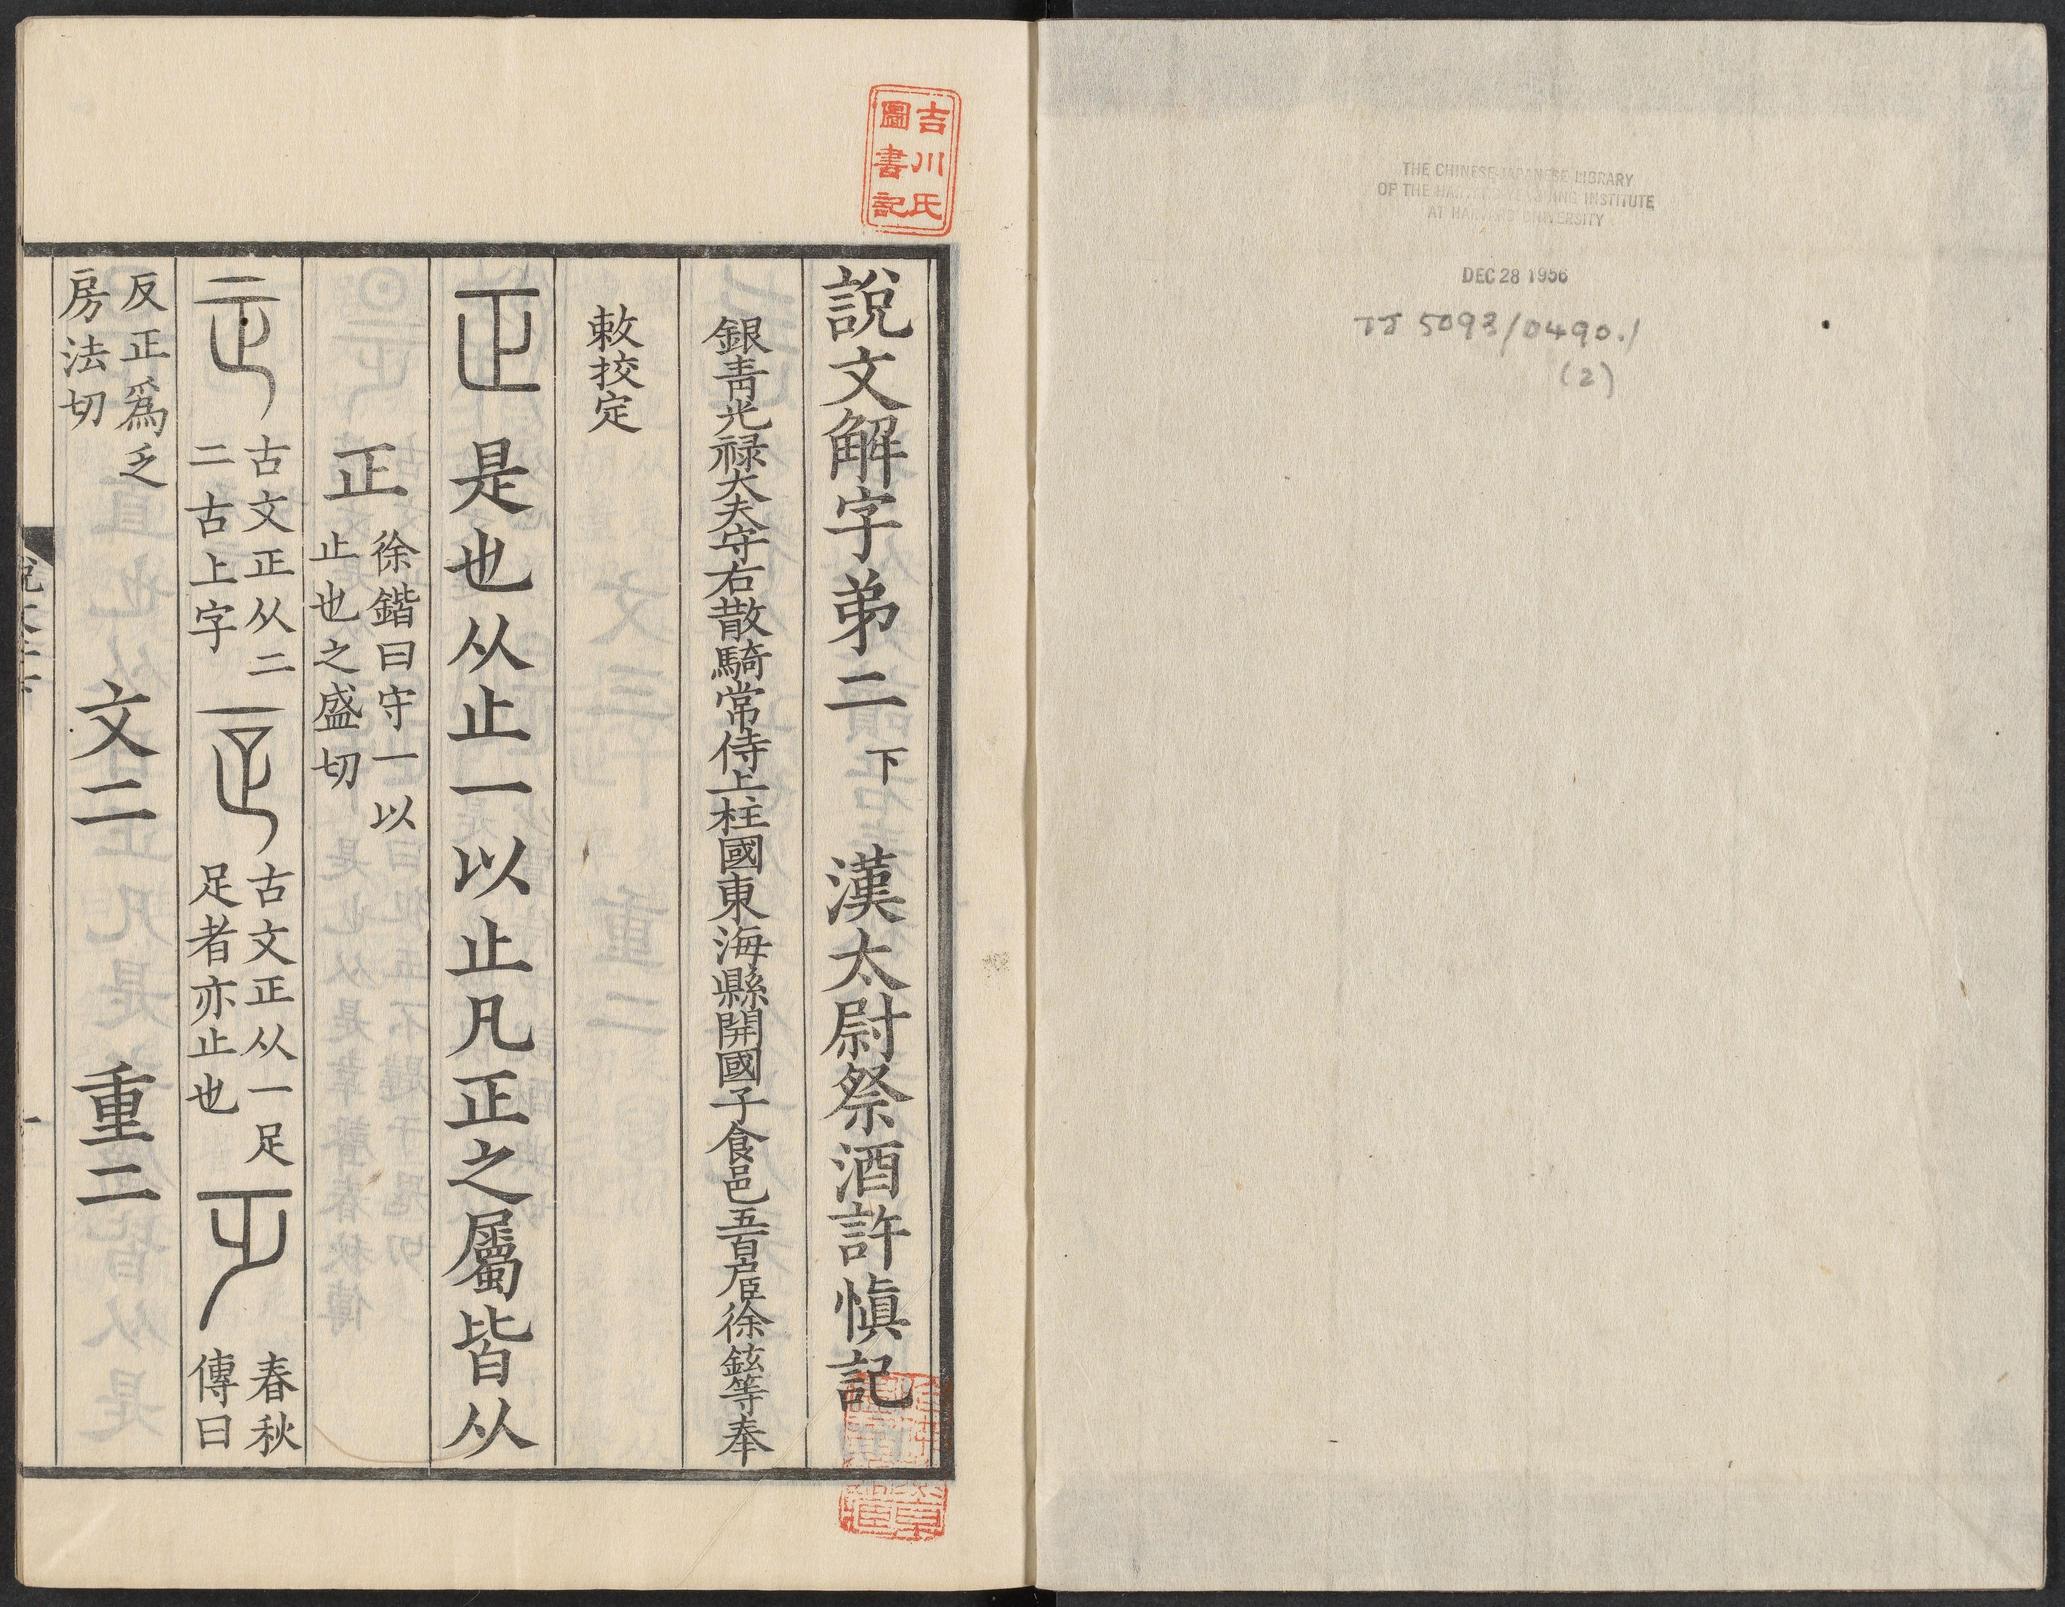 THE CHINESE-JAPANESE LIBRARY
OF THE HARVARD-YENCHING INSTITUTE
AT HARVARD UNIVERSITY
DEC 28 1956
TJ 5093/0490.1
(2)
吉川氏
圖書記
說文解字弟二下 漢太尉祭酒許愼記
銀青光禄大夫守右散騎常侍上柱國東海縣開國子食邑五百戶臣徐鉉等奉
敕挍定
正 是也从止一以止凡正之屬皆从
正 徐鍇曰守一以
止也之盛切
古文正从二
二古上字
古文正从一足
足者亦止也
春秋
傳曰
反正爲乏
房法切
文二 重二